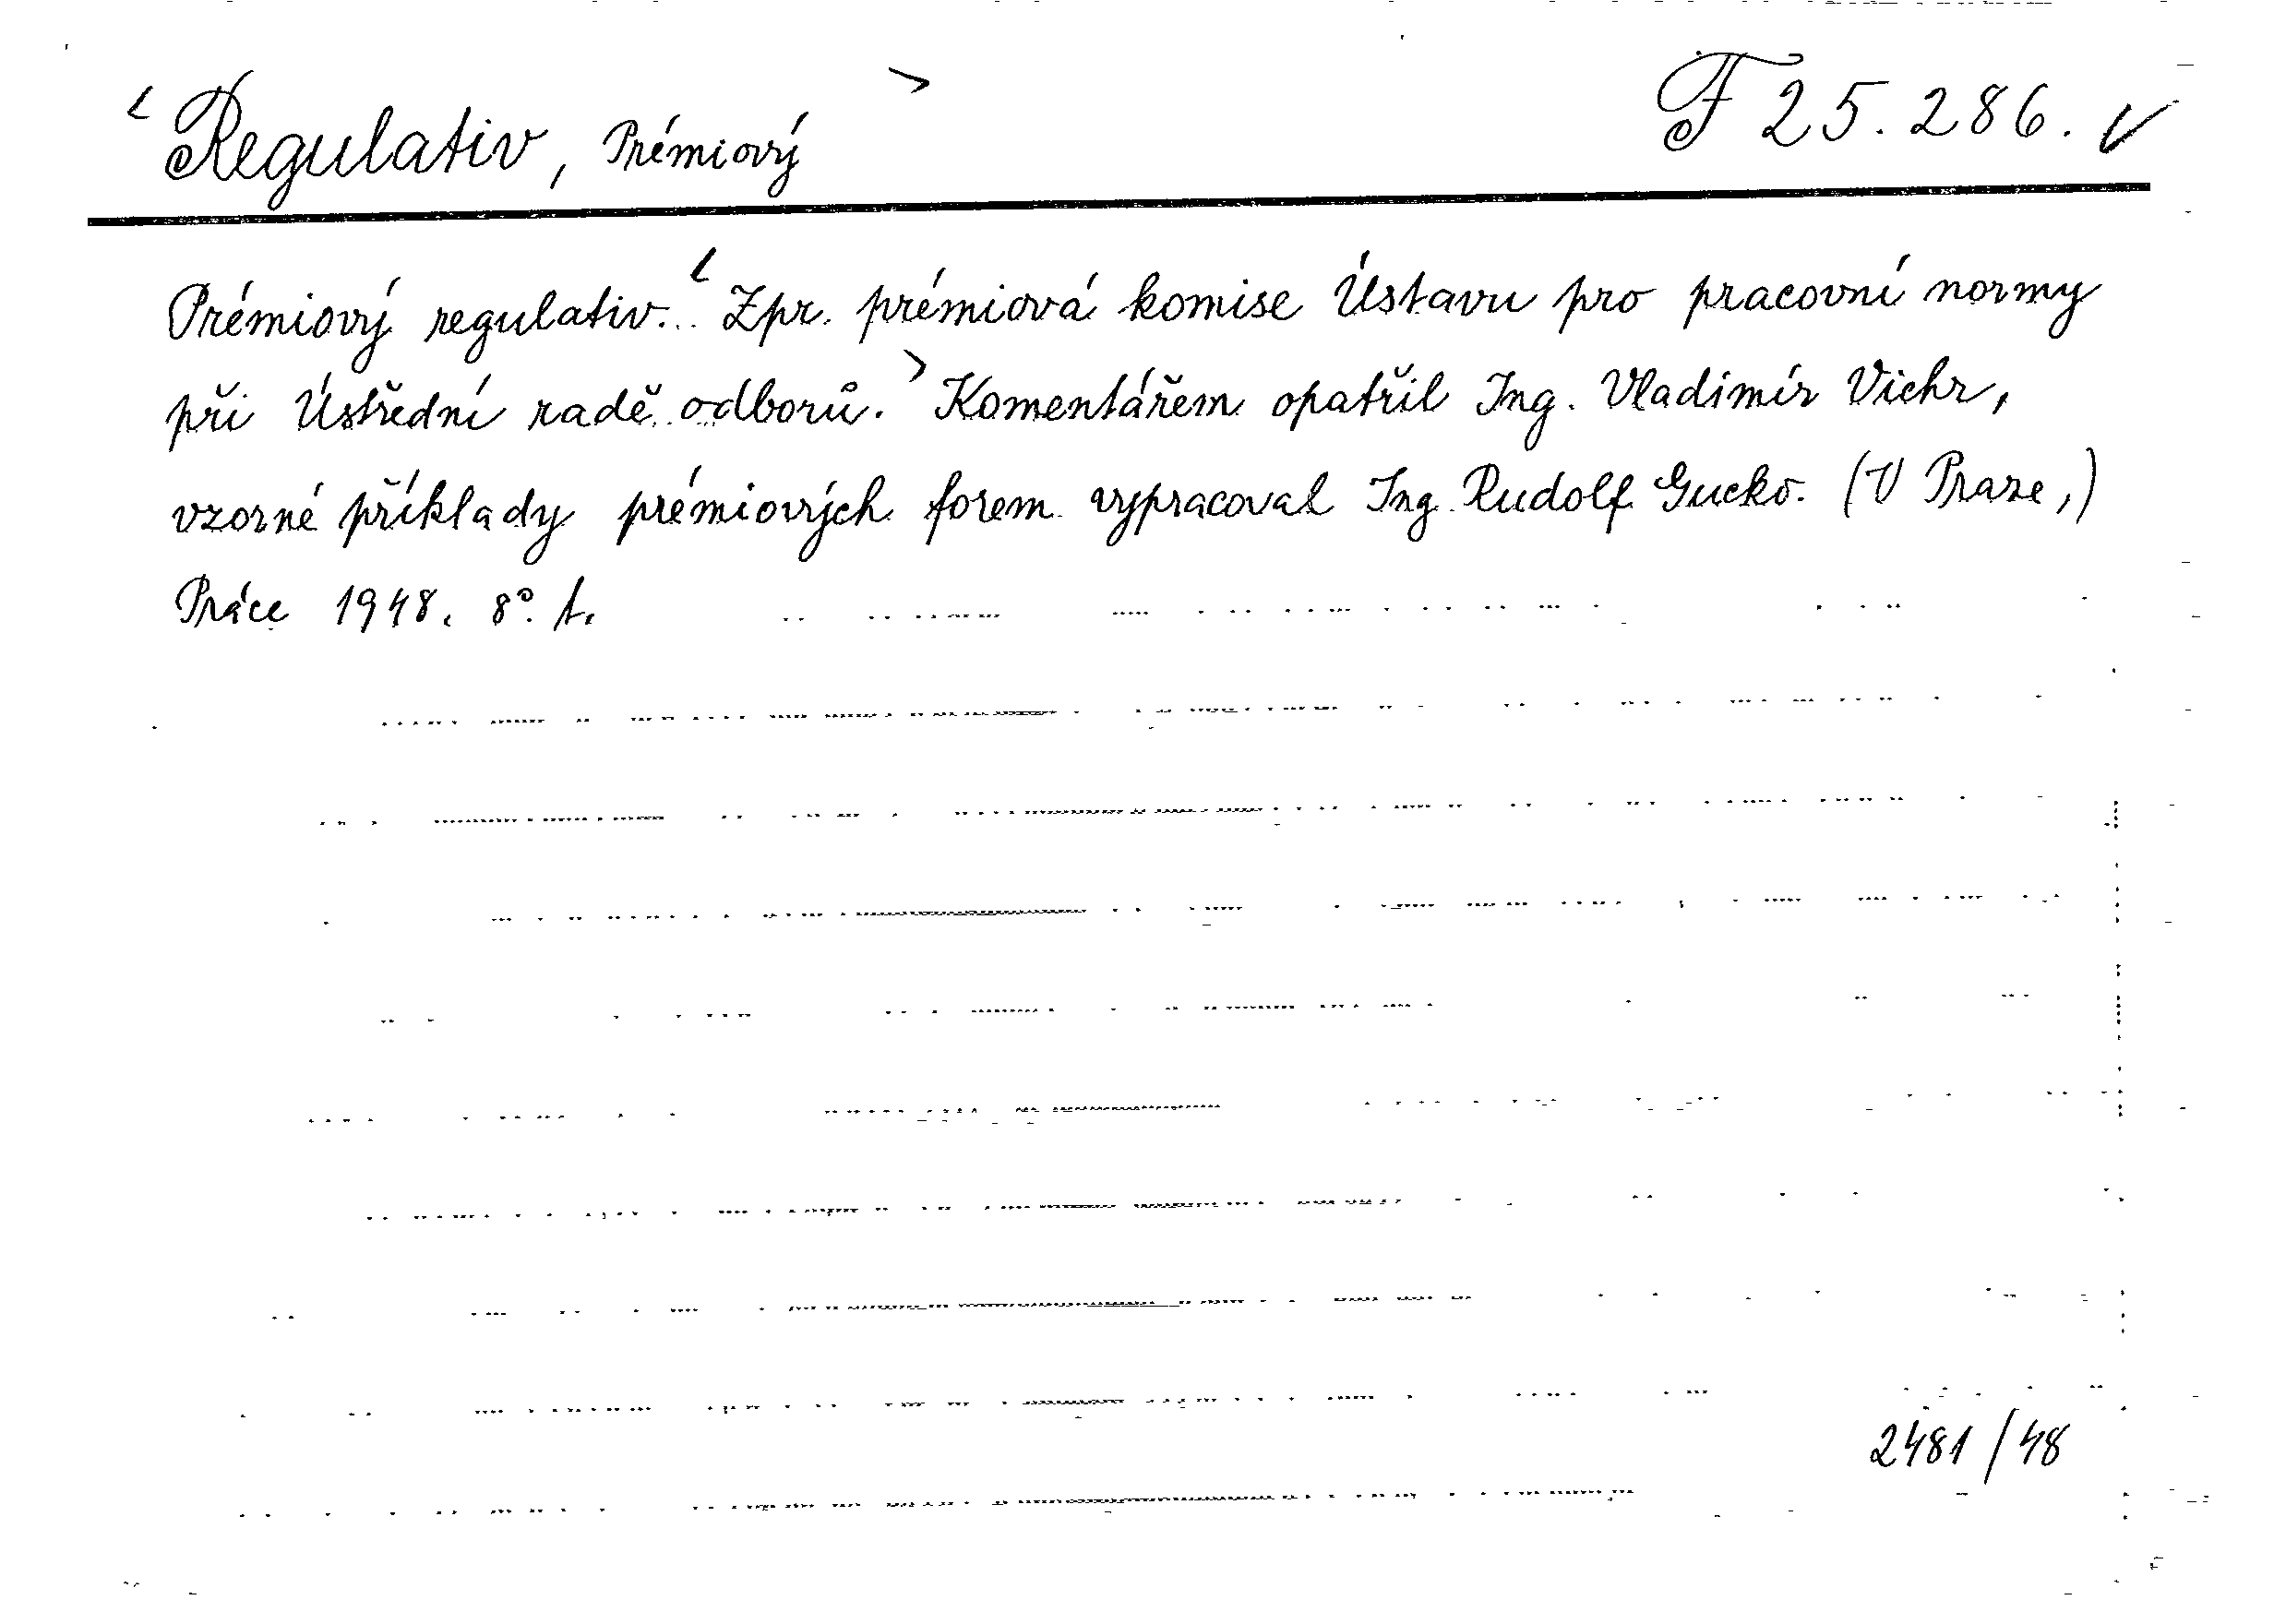 < Regulativ, Prémiový > F 25.286. ✓
Prémiový regulativ... < Zpr. prémiová komise Ústavu pro pracovní normy
při Ústřední radě odborů. > Komentářem opatřil Ing. Vladimír Vichr,
vzorné příklady prémiových forem vypracoval Ing. Rudolf Gucko. (V Praze,)
Práce 1948. 8°. t.
2481/48